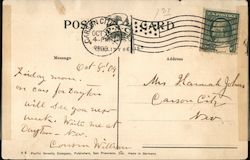 POST CARD
Message
Address
Oct 8, 09
Friday morn.
on cars for Dayton
will see you next
week. Write me at
Dayton Nev.
Cousin William
Mrs Hannah Johns
Carson City
Nev
Pacific Novelty Company, Publishers, San Francisco, Cal. Made in Germany